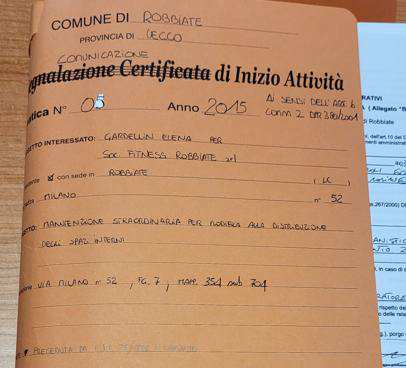 COMUNE DI ROBBIATE
PROVINCIA DI LECCO
COMUNICAZIONE
gnalazione Certificata di Inizio Attività
tica N° 05 Anno 2015
AI SENSI DELL' ART. 6
COMM 2 DPR 380/2001
INTERESSATO: GARDELLIN ELENA PER
SOC FITNESS ROBBIATE srl
con sede in ROBBIATE ( LC )
MILANO n° 52
MANUTENZIONE STRAORDINARIA PER MODIFICA ALLA DISTRIBUZIONE
DEGLI SPAZI INTERNI
VIA MILANO n 52, FG. 7, MAPP. 354 sub 704
PRECEDUTA DA
RATIVI
( Allegato "B
Robbiate
p.267/2000) DI
in caso di
rispetto de
delle rela
porgo